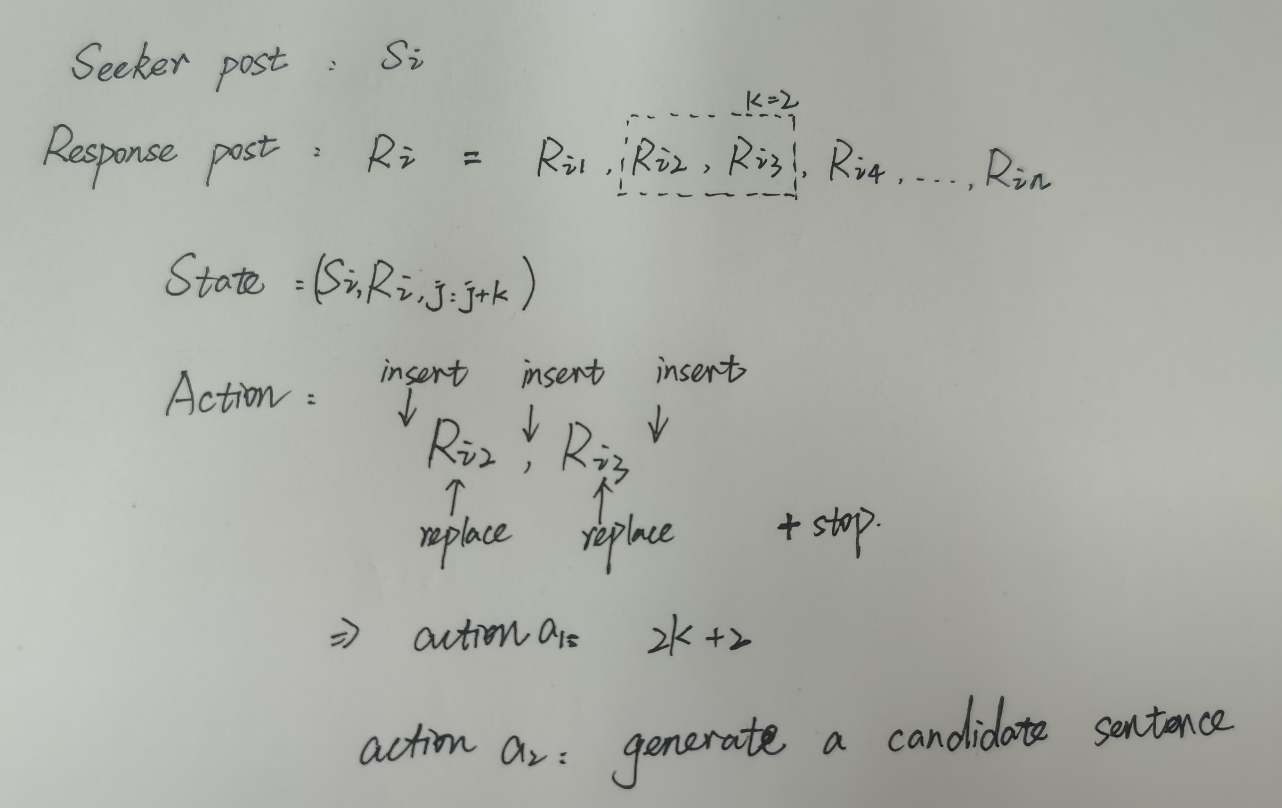 Seeker post : Si
k=2
Response post : Ri = Ri1, Ri2, Ri3, Ri4, ...., Rin
State : (Si, Ri, j:j+k)
insert insert insert
Action :
↓ ↓ ↓
Ri2 , Ri3
↑ ↑
replace replace + stop.
⇒ action a1: 2k+2
action a2: generate a candidate sentence